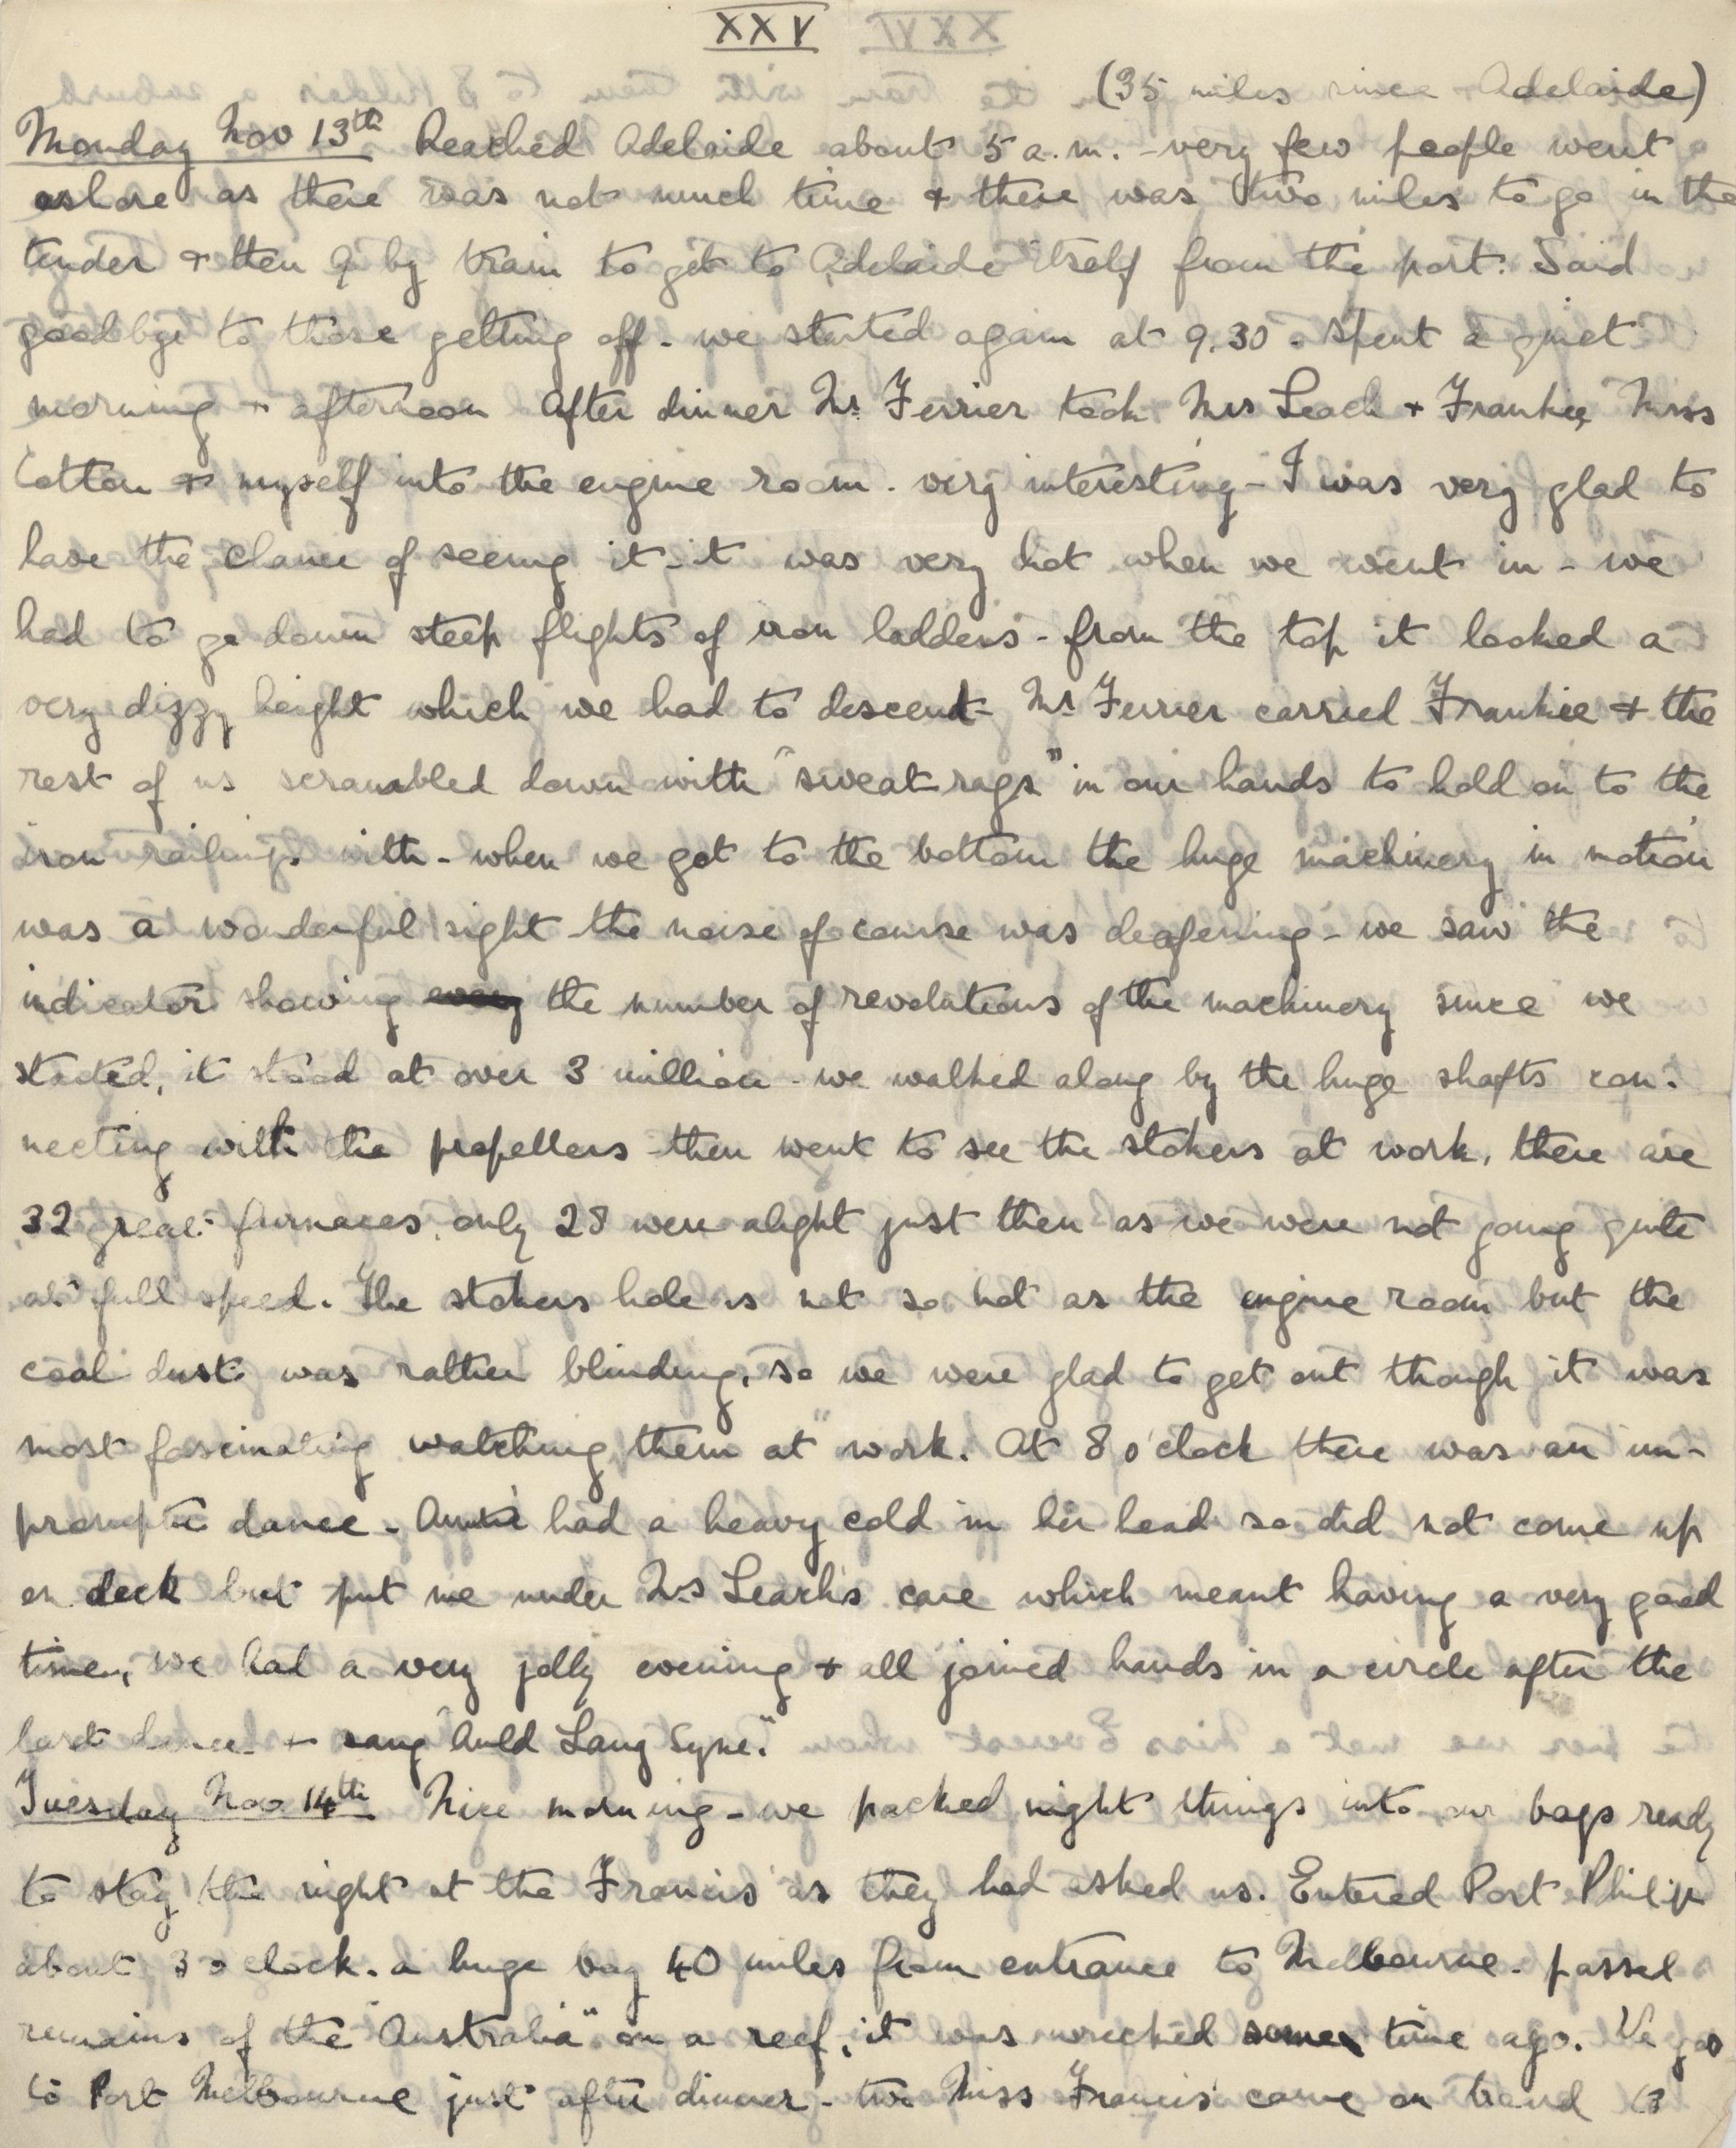 XXV
(35 miles since Adelaide)
Monday Nov 13th Reached Adelaide about 5 a.m. - very few people went
ashore as there was not much time & there was two miles to go in the
tender & then 9 by train to get to Adelaide itself from the port. Said
goodbye to those getting off - we started again at 9.30. Spent a quiet
morning & afternoon After dinner Mr Ferrier took Mrs Leach & Frankie, Miss
Cotton & myself into the engine room. very interesting - I was very glad to
have the chance of seeing it - it was very hot when we went in - we
had to go down steep flights of iron ladders - from the top it looked a
very dizzy height which we had to descend - Mr Ferrier carried Frankie & the
rest of us scrambled down with "sweat rags" in our hands to hold on to the
iron railings with - when we got to the bottom the huge machinery in motion
was a wonderful sight - the noise of course was deafening - we saw the
indicator showing the number of revolutions of the machinery since we
started, it stood at over 3 million - we walked along by the huge shafts con-
necting with the propellers - then went to see the stokers at work, there are
32 great furnaces, only 28 were alight just then as we were not going quite
at full speed. The stokers hole is not so hot as the engine room but the
coal dust was rather blinding, so we were glad to get out though it was
most fascinating watching them at work. At 8 o'clock there was an im-
promptu dance - Auntie had a heavy cold in her head so did not come up
on deck but put me under Mrs Leach's care which meant having a very good
time, we had a very jolly evening & all joined hands in a circle after the
last dance & sang "Auld Lang Syne."
Tuesday Nov 14th Nice morning - we packed night things into our bags ready
to stay the night at the Francis' as they had asked us. Entered Port Philip
about 3 o'clock. a huge bay 40 miles from entrance to Melbourne - passed
remains of the "Australia" on a reef, it was wrecked some time ago. We got
to Port Melbourne just after dinner - two Miss Francis' came on board (3